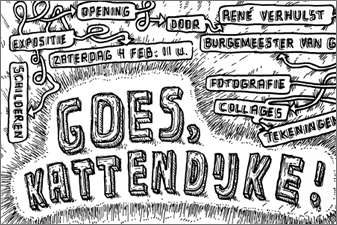 OPENING
DOOR
RENÉ VERHULST
EXPOSITIE
BURGEMEESTER VAN G
ZATERDAG 4 FEB. 11 U.
SCHILDEREN
FOTOGRAFIE
COLLAGES
TEKENINGEN
GOES,
KATTENDIJKE!